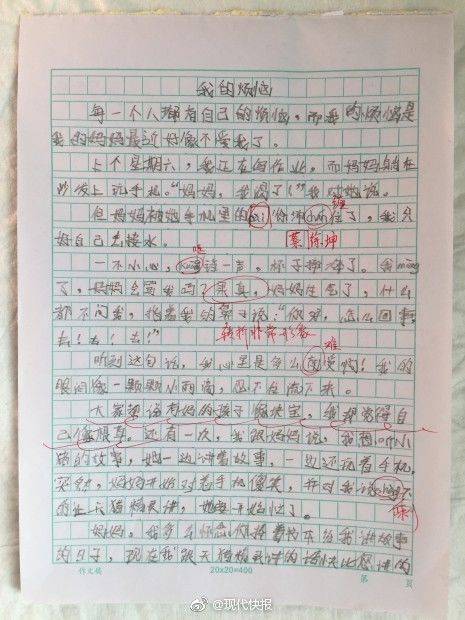 我的烦恼
每一个人都有自己的烦恼，而我的烦恼是
我的妈妈最近好像不爱我了。
上个星期六，我正在写作业，而妈妈躺在
沙发上玩手机。“妈妈，我渴了！”我对她说。
但妈妈被她手机里的 你 住了，我只
缠
好自己去接水。
蔡徐坤
一不小心， 一声，杯子摔碎了。我
了，妈妈会骂我吗？果真，妈妈生气了，什么
都不问我，指着我的鼻子说：“你呀，怎么回事，
去！去！去！”
转折非常形象
听到这句话，我心里是多么 受啊！我的
难
眼泪像一颗颗小雨滴，忍不住流下来。
大家都说有妈的孩子像块宝，我却觉得自
己像根草。还有一次，我跟妈妈说，我想听小
猪的故事，她一边讲着故事，一边还看着手机，
突然，妈妈开始对着手机傻笑，并对我说
的让天猫精灵讲，她
陈
妈妈，我多么怀念你捧着书本给我讲故事
的日子，现在我跟天猫精灵讲的话快比您讲的
作文稿
20×20=400
第 页
@现代快报